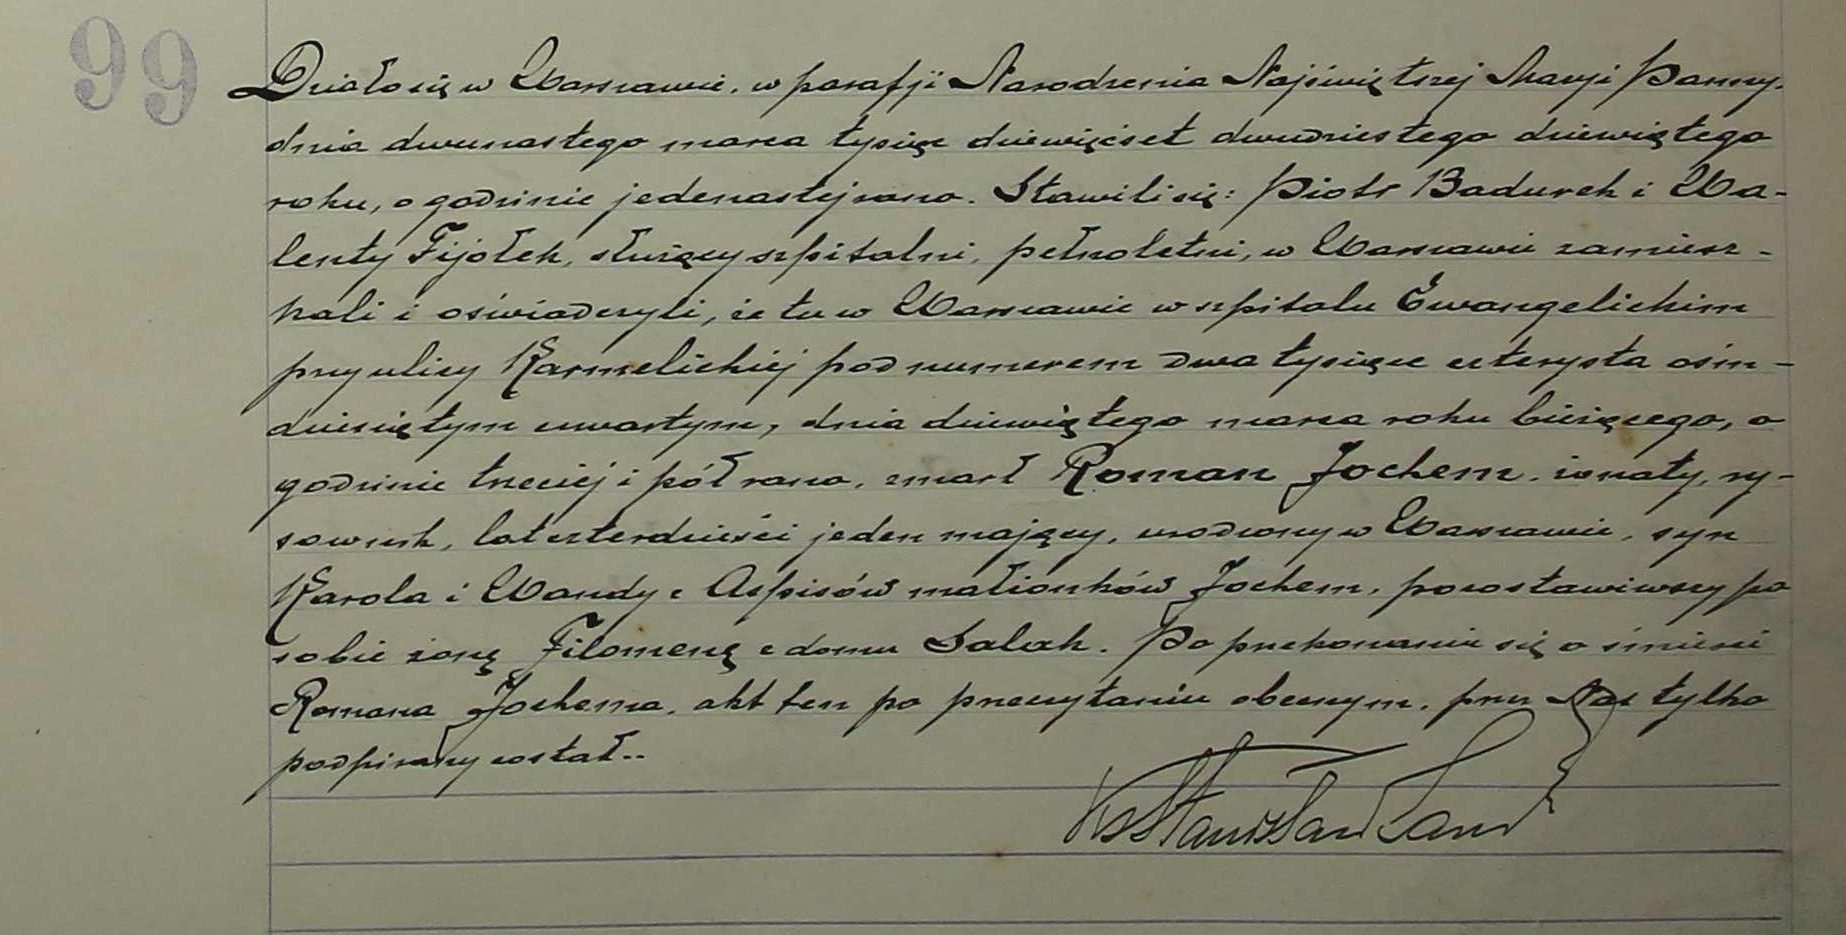 99
Działo się w Warszawie, w parafji Narodzenia Najświętszej Maryi Panny,
dnia dwunastego marca tysiąc dziewięćset dwudziestego dziewiątego
roku, o godzinie jedenastej rano. Stawili się: Piotr Badurek i Wa-
lenty Fijołek, służący szpitalni, pełnoletni, w Warszawie zamiesz-
kali i oświadczyli, że tu w Warszawie w szpitalu Ewangelickim
przy ulicy Karmelickiej pod numerem dwa tysiące czterysta ośm-
dziesiątym czwartym, dnia dziewiątego marca roku bieżącego, o
godzinie trzeciej i pół rano, zmarł Roman Jochem, żonaty, ry-
sownik, lat czterdzieści jeden mający, urodzony w Warszawie, syn
Karola i Wandy z Aspisów małżonków Jochem, pozostawiwszy po
sobie żonę Filomenę z domu Salak. Po przekonaniu się o śmierci
Romana Jochema, akt ten po przeczytaniu obecnym, przez Nas tylko
podpisany został..
Ks Stanisław